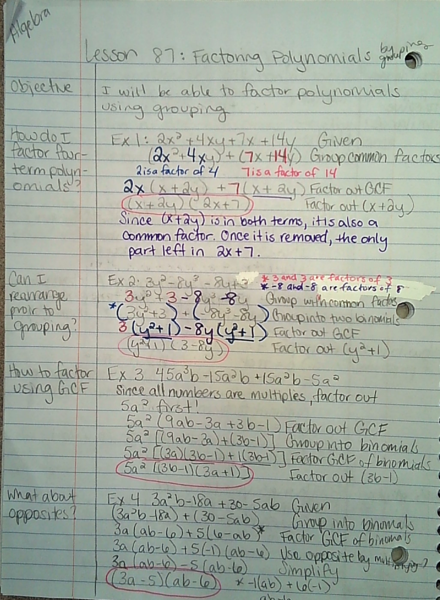 Algebra
Lesson 87: Factoring Polynomials by grouping
Objective
I will be able to factor polynomials
using grouping
How do I
factor four-
term polyn-
omials?
Ex 1: 2x² + 4xy + 7x + 14y Given
(2x² + 4xy) + (7x + 14y) Group common factors
2 is a factor of 4 7 is a factor of 14
2x (x + 2y) + 7 (x + 2y) Factor out GCF
(x + 2y) (2x + 7) Factor out (x + 2y)
Since (x + 2y) is in both terms, it is also a
common factor. Once it is removed, the only
part left in 2x + 7.
Can I
rearrange
proir to
grouping?
Ex 2: 3y² - 8y³ - 8y + 3
* 3 and 3 are factors of 3
* -8 and -8 are factors of 8
3y² + 3 - 8y³ - 8y Group with common factors
* (3y² + 3) + (-8y³ - 8y) Group into two binomials
3 (y² + 1) - 8y (y² + 1) Factor out GCF
(y² + 1) (3 - 8y) Factor out (y² + 1)
How to factor
using GCF
Ex. 3 45a³b - 15a²b + 15a²b - 5a²
Since all numbers are multiples, factor out
5a² first!
5a² (9ab - 3a + 3b - 1) Factor out GCF
5a² [(9ab - 3a) + (3b - 1)] Group into binomials
5a² [(3a)(3b - 1) + 1(3b - 1)] Factor GCF of binomials
5a² [(3b - 1)(3a + 1)] Factor out (3b - 1)
What about
opposites?
Ex 4. 3a²b - 18a + 30 - 5ab Given
(3a²b - 18a) + (30 - 5ab) Group into binomials
3a (ab - 6) + 5 (6 - ab) * Factor GCF of binomials
3a (ab - 6) + 5 (-1) (ab - 6) Use opposite by
3a (ab - 6) - 5 (ab - 6) Simplify
(3a - 5) (ab - 6) * -1(ab) + 6(-1)